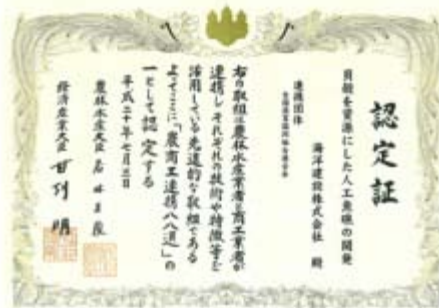 認定証
貝殻を資源にした人工魚礁の開発
海洋建設株式会社 殿
連携団体
全国漁業協同組合連合会
右の取組は農林水産業者と商工業者が
連携し それぞれの技術や特徴等を
活用している先進的な取組である
よってここに「農商工連携八八選」の
一として認定する
平成二十年七月三日
農林水産大臣 若林正俊
経済産業大臣 甘利 明